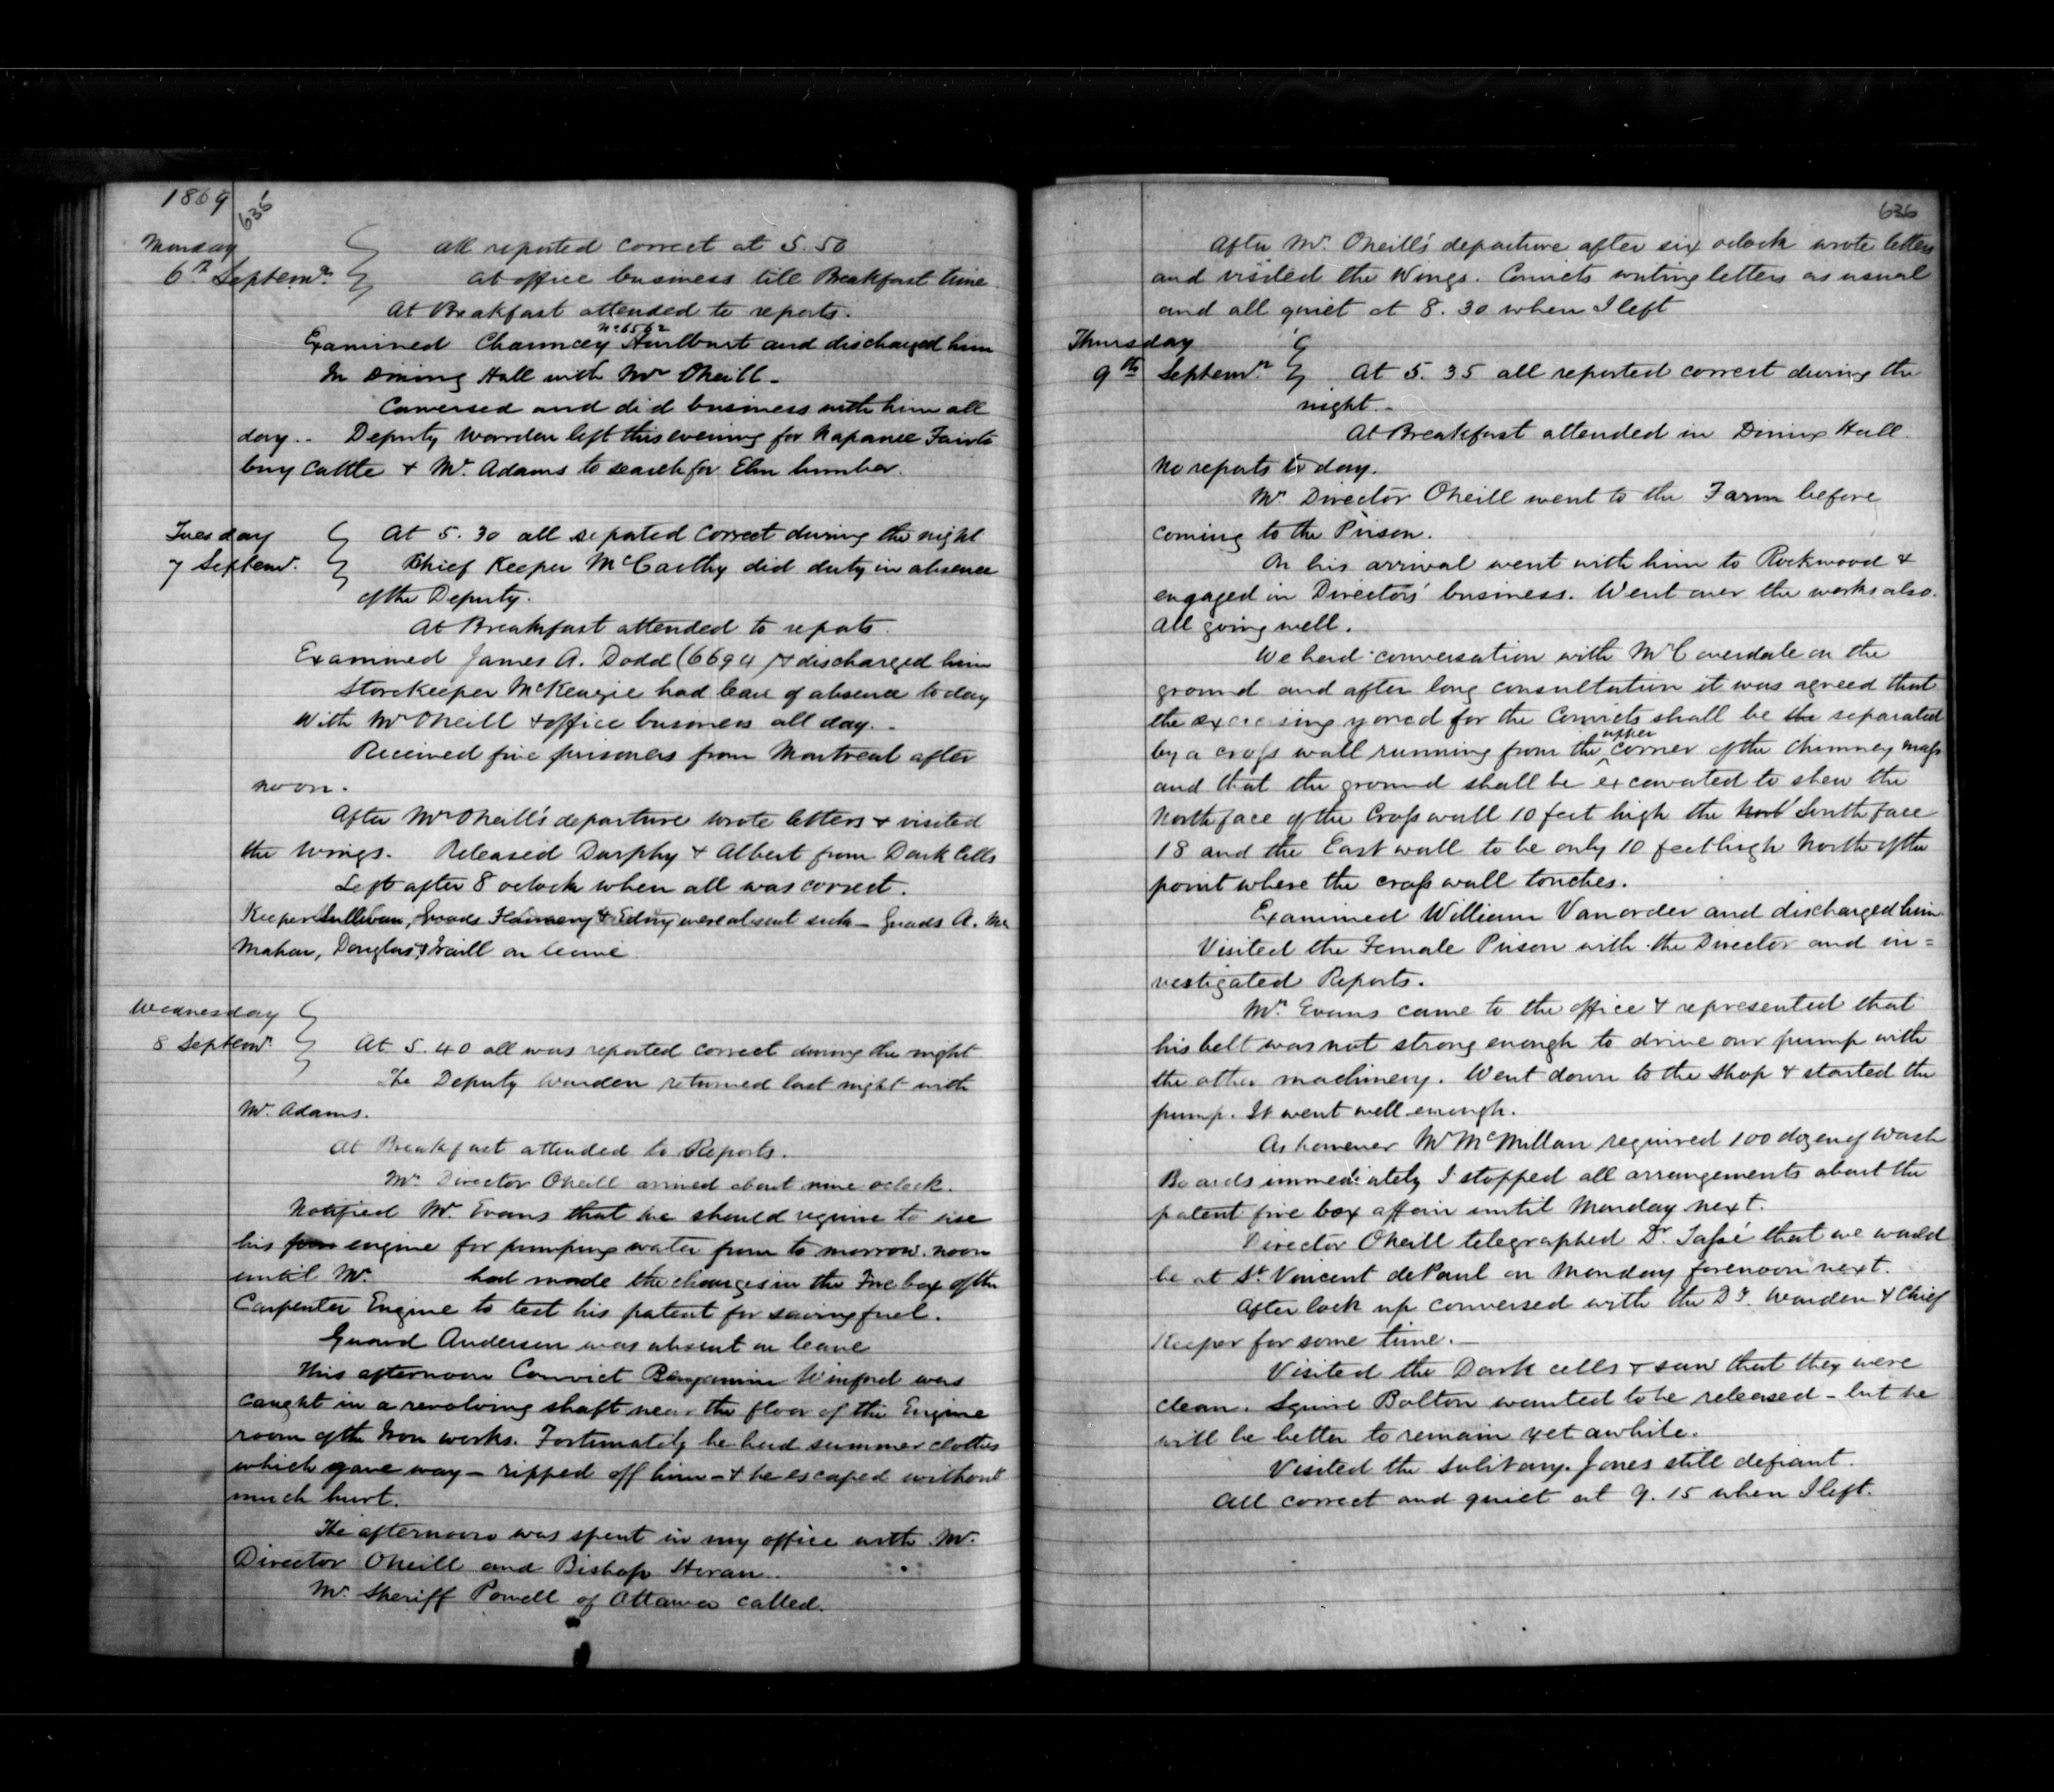 1869
635
Monday
6th Septemr.
all reported correct at 5.50
at office business till Breakfast time
At Breakfast attended to reports.
No 6562
Examined Chauncey Hurlburt and discharged him
In Dining Hall with Mr Oneill -
Conversed and did business with him all
day.. Deputy Warden left this evening for Napanee Fair to
buy Cattle & Mr. Adams to search for Elm lumber.
Tuesday
7 Septemr.
At 5.30 all reported correct during the night
Chief Keeper McCarthy did duty in absence
of the Deputy.
At Breakfast attended to repots.
Examined James A. Dodd (6694) & discharged him
Storekeeper McKenzie had leave of absence to day
With Mr Oneill & office business all day..
Received five prisoners from Montreal after
noon.
After Mr Oneill's departure wrote letters & visited
the Wings. Released Durphy & Albert from Dark Cells
Left after 8 oclock when all was correct.
Keeper Sullivan, Guads & Edny were absent sick - Guads A. Mc
Mahon, Douglas & on leave
Wednesday
8 Septemr.
At 5.40 all was reported correct during the night
The Deputy Warden returned last night with
Mr. Adams.
At Breakfast attended to Reports.
Mr. Director Oneill arrived about nine oclock.
Notified Mr. Evans that we should require to use
his engine for pumping water from to morrow noon
until Mr. had made the changes in the Fire box of the
Carpenter Engine to test his patent for saving fuel.
Guard Anderson was absent on leave
This afternoon Convict Benjamin Winford was
caught in a revolving shaft near the floor of the Engine
room of the Iron works. Fortunately he had summer clothes
which gave way - ripped off him - & he escaped without
much hurt.
The afternoon was spent in my office with Mr.
Director Oneill and Bishop Horan..
Mr. Sheriff Powell of Ottawa called.
636
After Mr. Oneill's departure after six oclock wrote letters
and visited the Wings. Convicts writing letters as usual
and all quiet at 8.30 when I left
Thursday
9th Septemr.
At 5.35 all reported correct during the
night..
At Breakfast attended in Dining Hall.
No reports to day.
Mr. Director Oneill went to the Farm before
coming to the Prison.
On his arrival went with him to Rockwood &
engaged in Directors' business. Went over the works also.
All going well.
We had conversation with Mr Coverdale on the
ground and after long consultation it was agreed that
the exercising yard for the Convicts shall be the separated
by a cross wall running from the upper corner of the chimney mass
and that the ground shall be excavated to shew the
North face of the Cross wall 10 feet high the Nort South face
18 and the East wall to be only 10 feet high North of the
point where the cross wall touches.
Examined William Vanorder and discharged him.
Visited the Female Prison with the Director and in=
vestigated Reports.
Mr. Evans came to the office & represented that
his belt was not strong enough to drive our pump with
the other machinery. Went down to the Shop & started the
pump. It went well enough.
As however Mr McMillan required 100 dozen of Wash
Boards immediately I stopped all arrangements about the
patent fire box affair until Monday next.
Director Oneill telegraphed Dr. Tassé that we would
be at St. Vincent de Paul on Monday forenoon next.
After lock up conversed with the Dy. Warden & Chief
Keeper for some time. -
Visited the Dark cells & saw that they were
clean. Squire Bolton wanted to be released - but he
will be better to remain yet awhile.
Visited the Solitary. Jones still defiant.
All correct and quiet at 9.15 when I left.